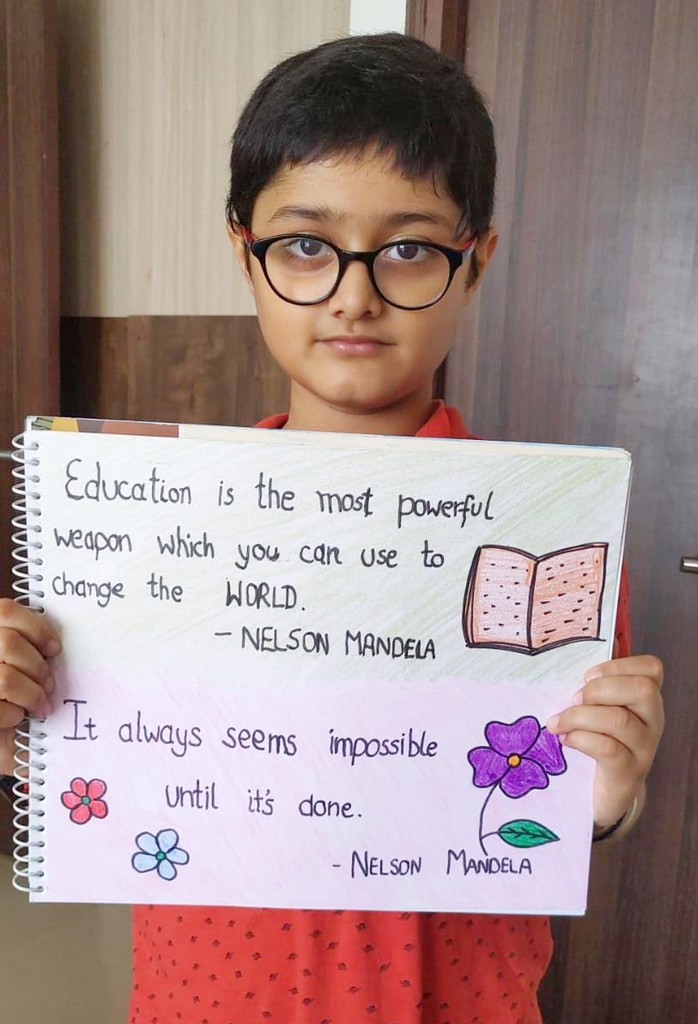 Education is the most powerful
weapon which you can use to
change the WORLD.
- NELSON MANDELA
It always seems impossible
until it's done.
- NELSON MANDELA